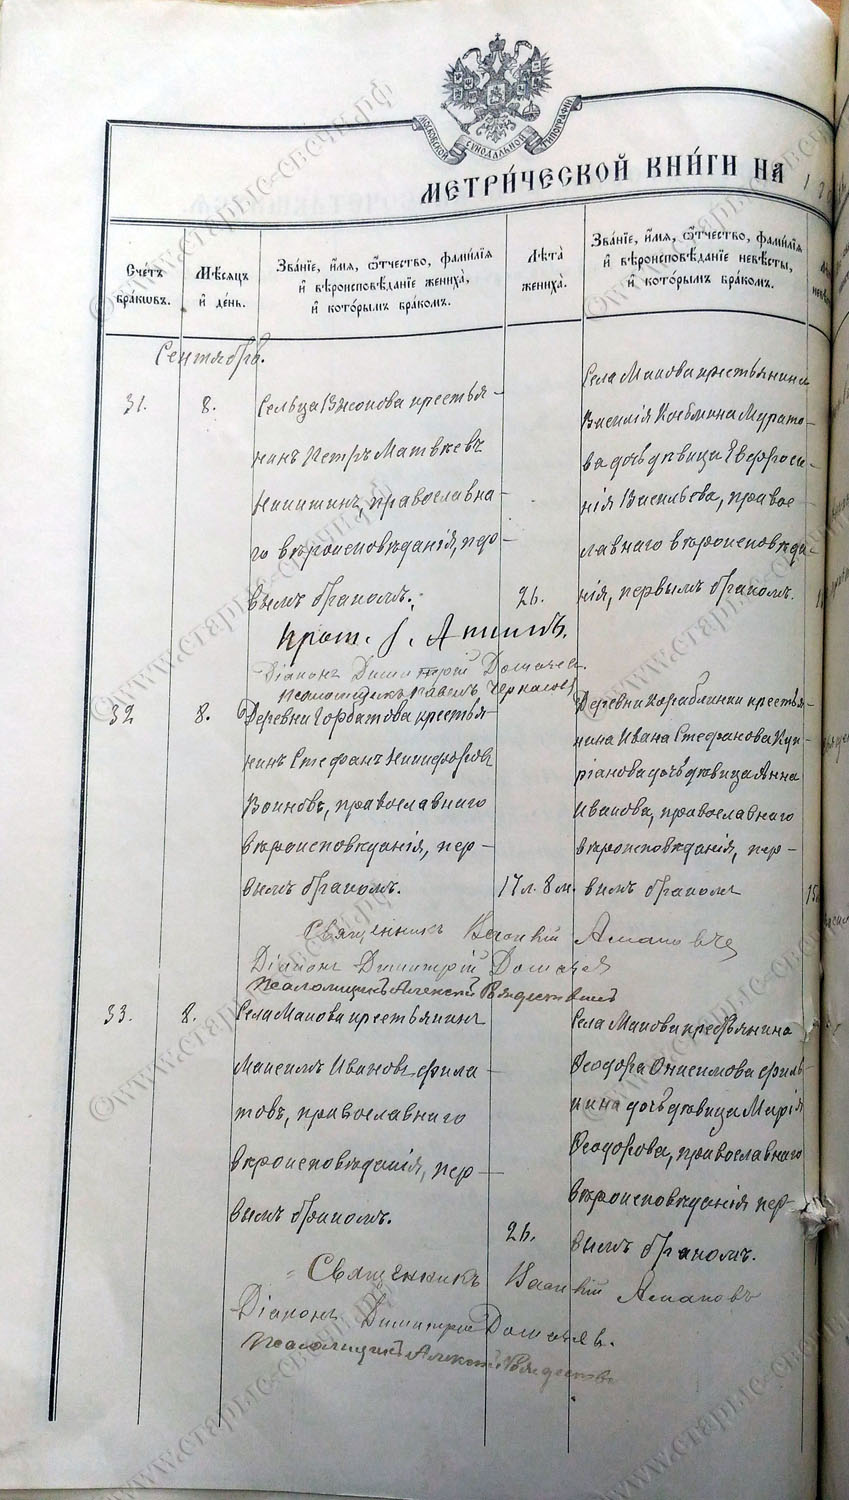 МОСКОВСКОЙ СѴНОДАЛЬНОЙ ТИПОГРАФІИ
МЕТРИ́ЧЕСКОЙ КНИ́ГИ НА 18
Сче́тъ бра́кωвъ.
Мѣ́сяцъ и҆ де́нь.
Зва́нїе, и҆́мя, ѻ҆́тчество, фами́лїя и҆ вѣроисповѣ́данїе жениха̀, и҆ кото́рымъ бра́комъ.
Лѣ́та жениха̀.
Зва́нїе, и҆́мя, ѻ҆́тчество, фами́лїя и҆ вѣроисповѣ́данїе невѣ́сты, и҆ кото́рымъ бра́комъ.
Сентябрь.
31.
8.
Сельца крестья-
нинъ Петръ Матвѣевъ
Никитинъ, православна-
го вѣроисповѣданія,
вымъ бракомъ.
26.
Села Макова крестьянина
Василія Косьмина Мурато-
ва дочь дѣвица Евфроси-
нія Васильева, право-
славнаго вѣроисповѣда-
нія, первымъ бракомъ.
Прот. І.
Діаконъ Димитрій Дотаевъ
Псаломщикъ Павелъ Черкасовъ
32
8.
Деревни Горбатова крестья-
нинъ Стефанъ Никифоровъ
Воиновъ, православнаго
вѣроисповѣданія, пер-
вымъ бракомъ.
17 л. 8 м.
Деревни Кораблинки крестья-
нина Ивана Стефанова Куп-
ріанова дочь дѣвица Анна
Иванова, православнаго
вѣроисповѣданія, пер-
вымъ бракомъ
15
Священникъ Василій
Діаконъ Димитрій
Псаломщикъ Алексій
33.
8.
Села Макова крестьянинъ
Максимъ Ивановъ Фила-
товъ, православнаго
вѣроисповѣданія, пер-
вымъ бракомъ.
26.
Села Макова крестьянина
Ѳеодора Онисимова Филь-
кина дочь дѣвица Марія
Ѳеодорова, православнаго
вѣроисповѣданія пер-
вымъ бракомъ.
Священникъ Василій
Діаконъ Димитрій
Псаломщикъ Алексій
©www.старые-свечи.рф